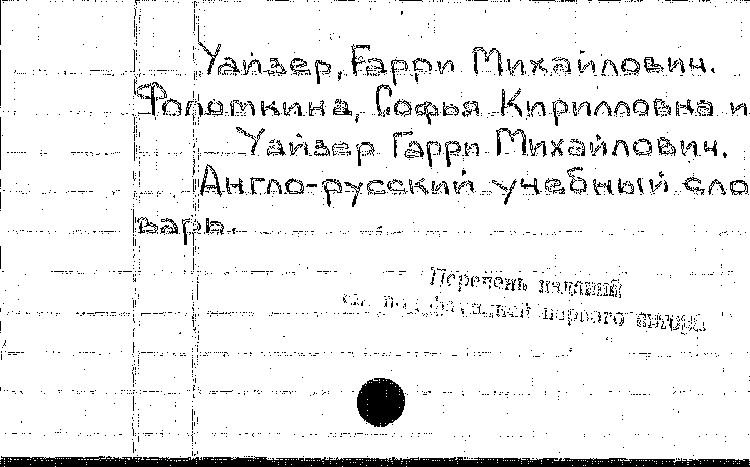 Уайзер, Гарри Михайлович.
Фоломкина, Софья Кирилловна и
Уайзер Гарри Михайлович.
Англо-русский учебный сло
варь.
Перечень изданий
см. под фамилией первого автора.